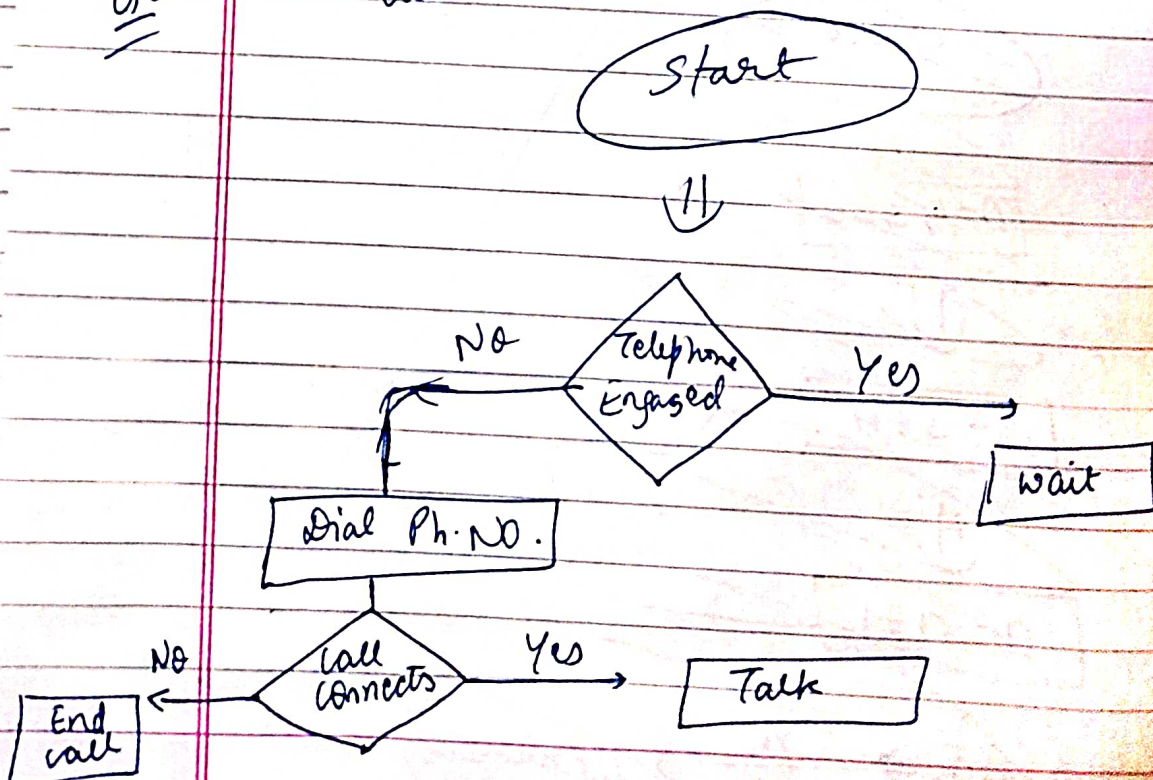 Start
Telephone
Engaged
No
Yes
wait
Dial Ph. No.
Call
connects
No
Yes
Talk
End
call